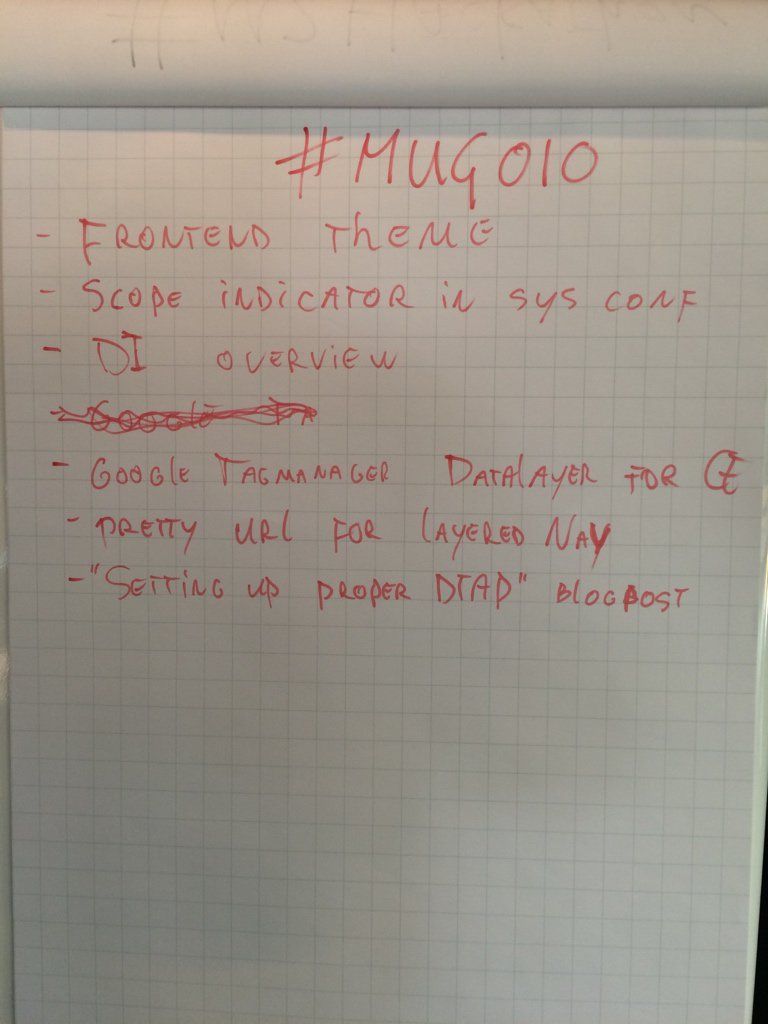 #MUG010
- FRONTEND THEME
- SCOPE INDICATOR IN SYS CONF
- DI OVERVIEW
- GOOGLE TAGMANAGER DATALAYER FOR CE
- PRETTY URL FOR LAYERED NAV
- "SETTING UP PROPER DTAP" BLOGPOST